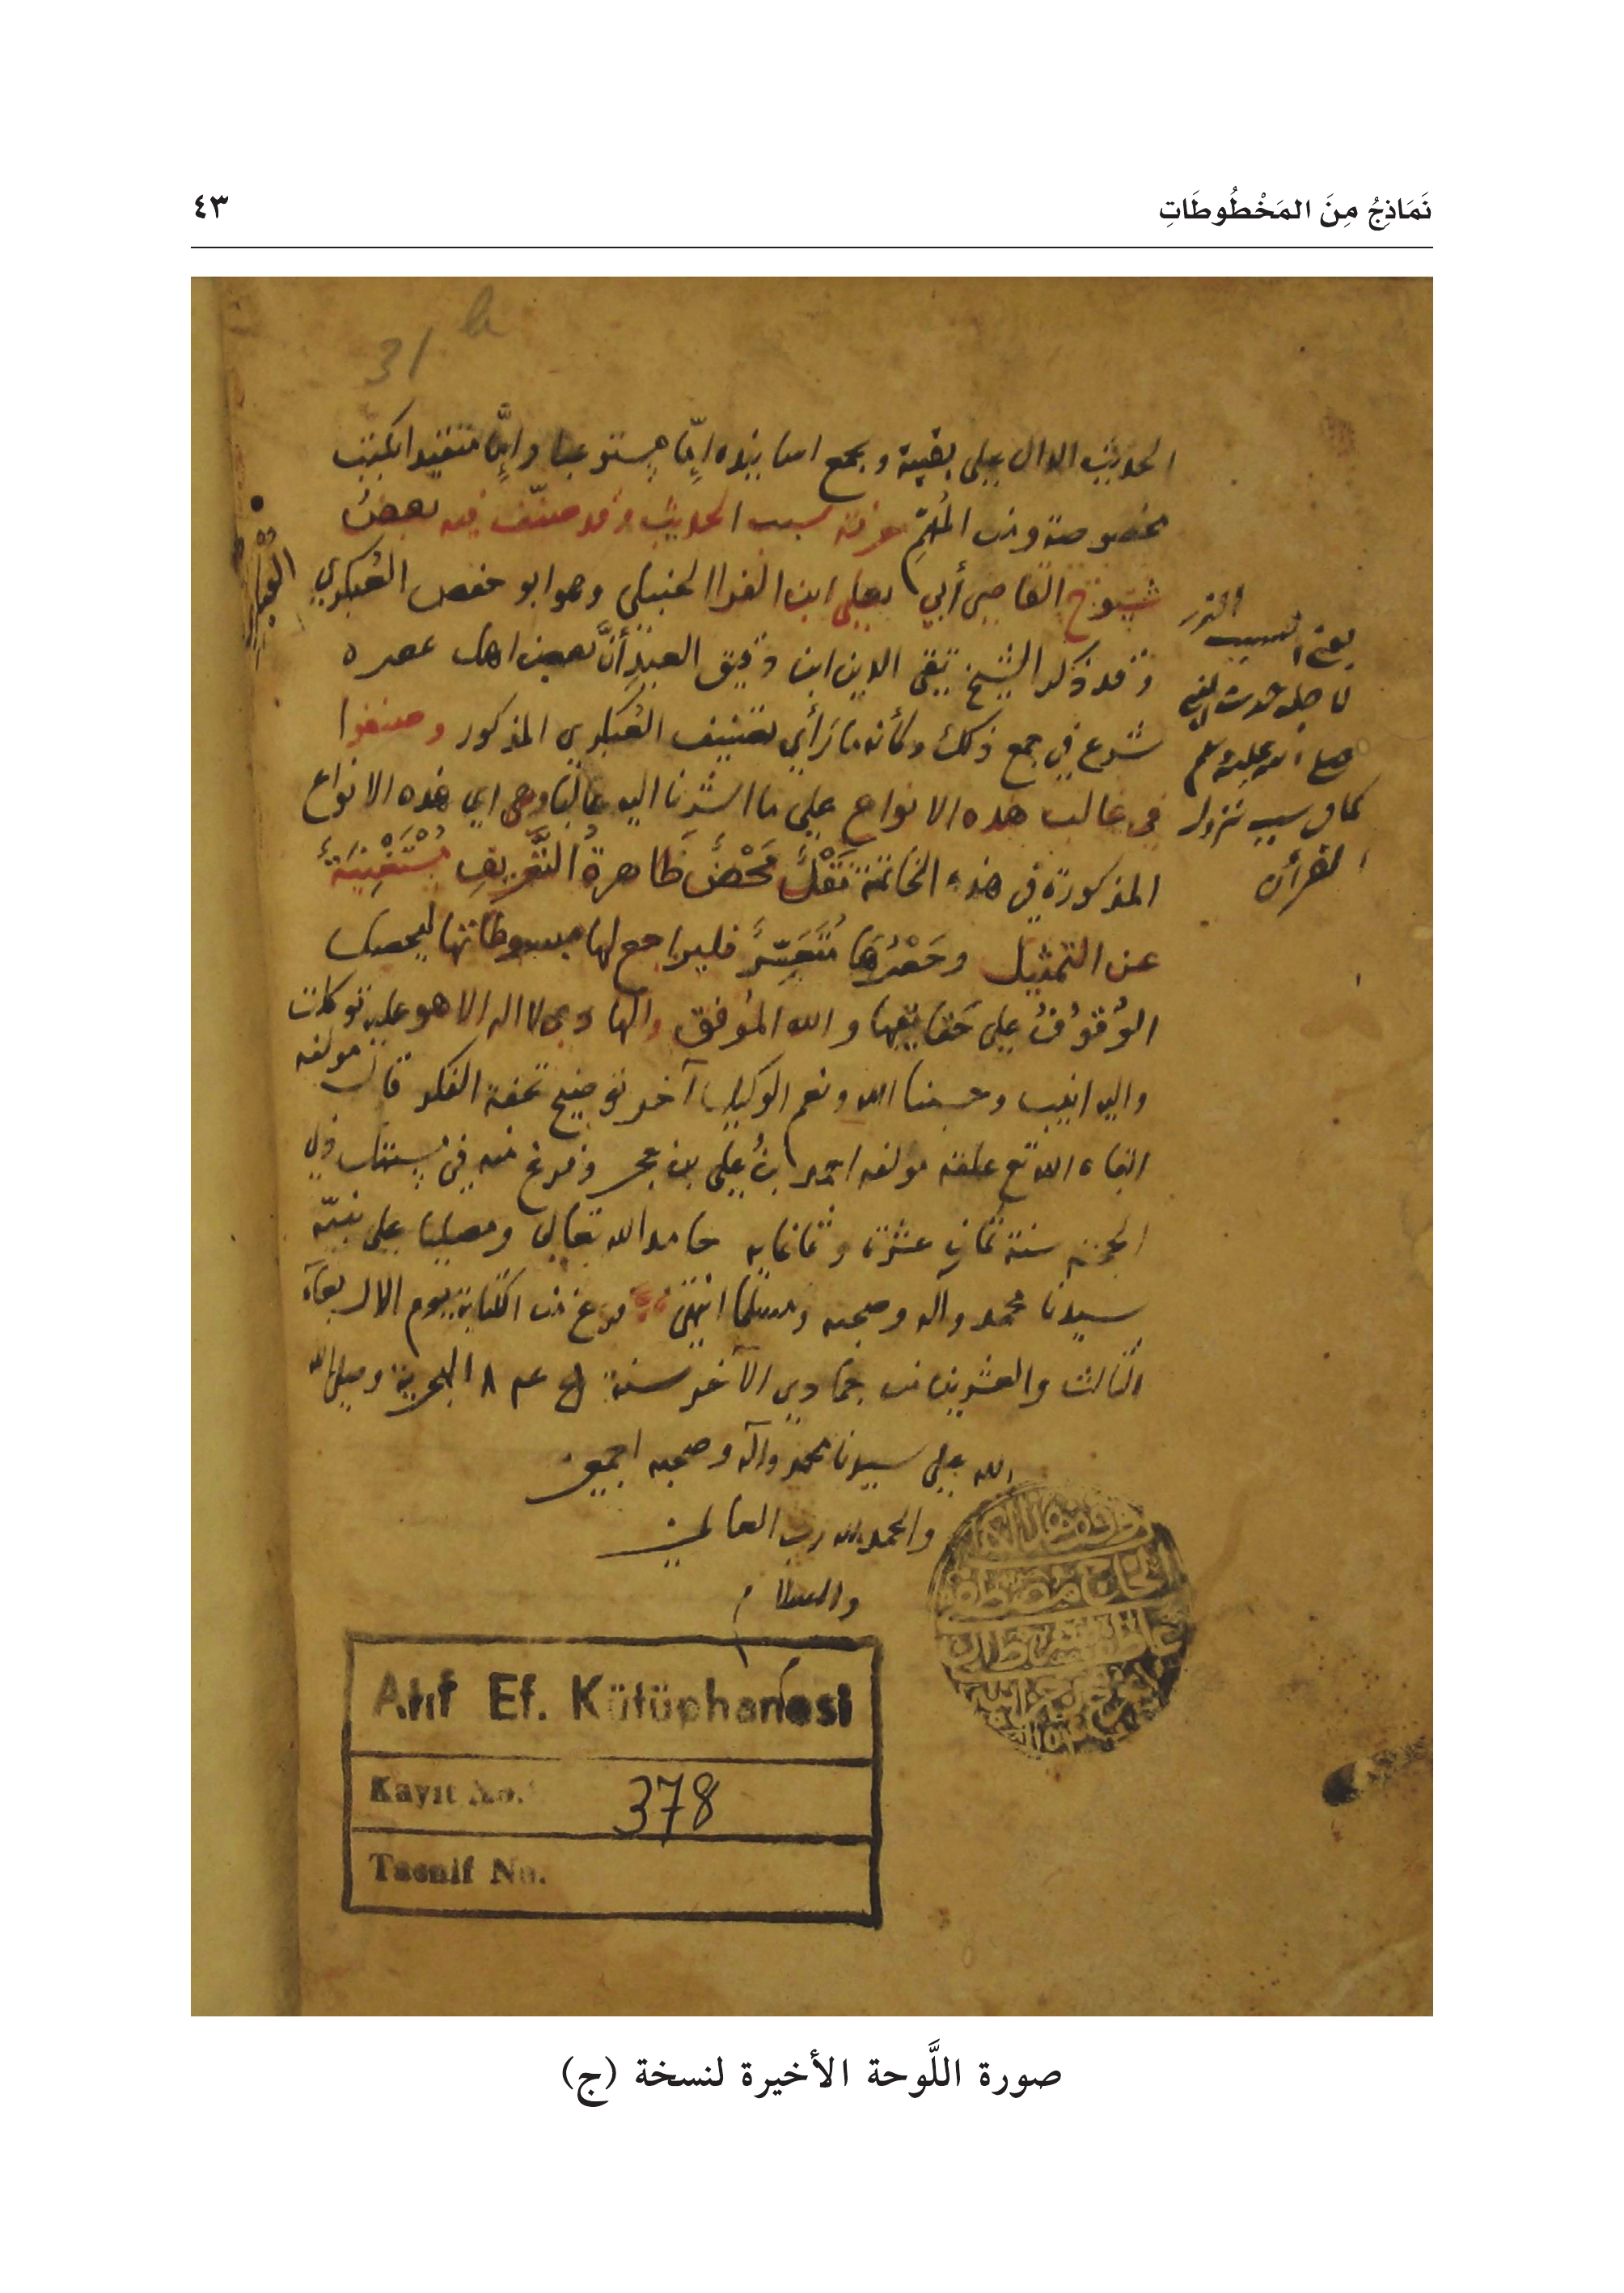 نَمَاذِجُ مِنَ المَخْطُوطَاتِ
٤٣
31 b
الحديث الدال على بقيته ويجمع اسانيده إمّا مستوعبا وإمّا متقيدا بكتب
مخصوصة ومن المُهِمِّ معرفة سبب الحديث وقد صنّف فيه بعضُ
شيوخ القاضي أبي يعلى ابن الفرا الحنبلي وهو ابو حفص العُكبري
وقد ذكر الشيخ تقي الدين ابن دقيق العيد أنَّ بعض اهل عصره
شرع في جمع ذلك وكأنه ما رَأي تصنيف العُكبري المذكور وصنفوا
في غالب هذه الانواع على ما اشرنا اليه غالبا وهي اي هذه الانواع
المذكورة في هذه الخاتمة نَقْلٌ مَحْضٌ ظاهرةُ التَّعْرِيفِ مُسْتَغْنِيَةٌ
عن التمثيل وحَصْرُهَا مُتَعَسِّرٌ فليراجع لها مبسوطاتها ليحصل
الوُقوُفُ على حَقايقها والله المُوفق والهادي لا اله الا هو عليه توكلت
واليه انيب وحسبنا الله ونعم الوكيل آخر توضيح نخبة الفكر قال مولفه
ابقاه الله تع علقه مولفه احمد بنُ علي بن حجر وفرغ منه في مستهل ذي
الحجة سنة ثمان عشرة وثمانمايه حامدا لله تعالى ومصليا على نبيّه
سيدنا محمد وآله وصحبه ومسلما انتهى فرغ من الكتابة يوم الاربعآء
الثالث والعشرين من جمادي الآخر سنة الهجرية وصلى الله
الله على سيدنا محمد وآله وصحبه اجمعين
والحمد لله رب العالمين
والسلام
يعني السبب الذي
لاجله حدث النبي
صلى الله عليه وسلم
كما في سبب نزول
القرآن
Atıf Ef. Kütüphanesi
Kayıt No. 378
Tasnif No.
صورة اللَّوحة الأخيرة لنسخة (ج)